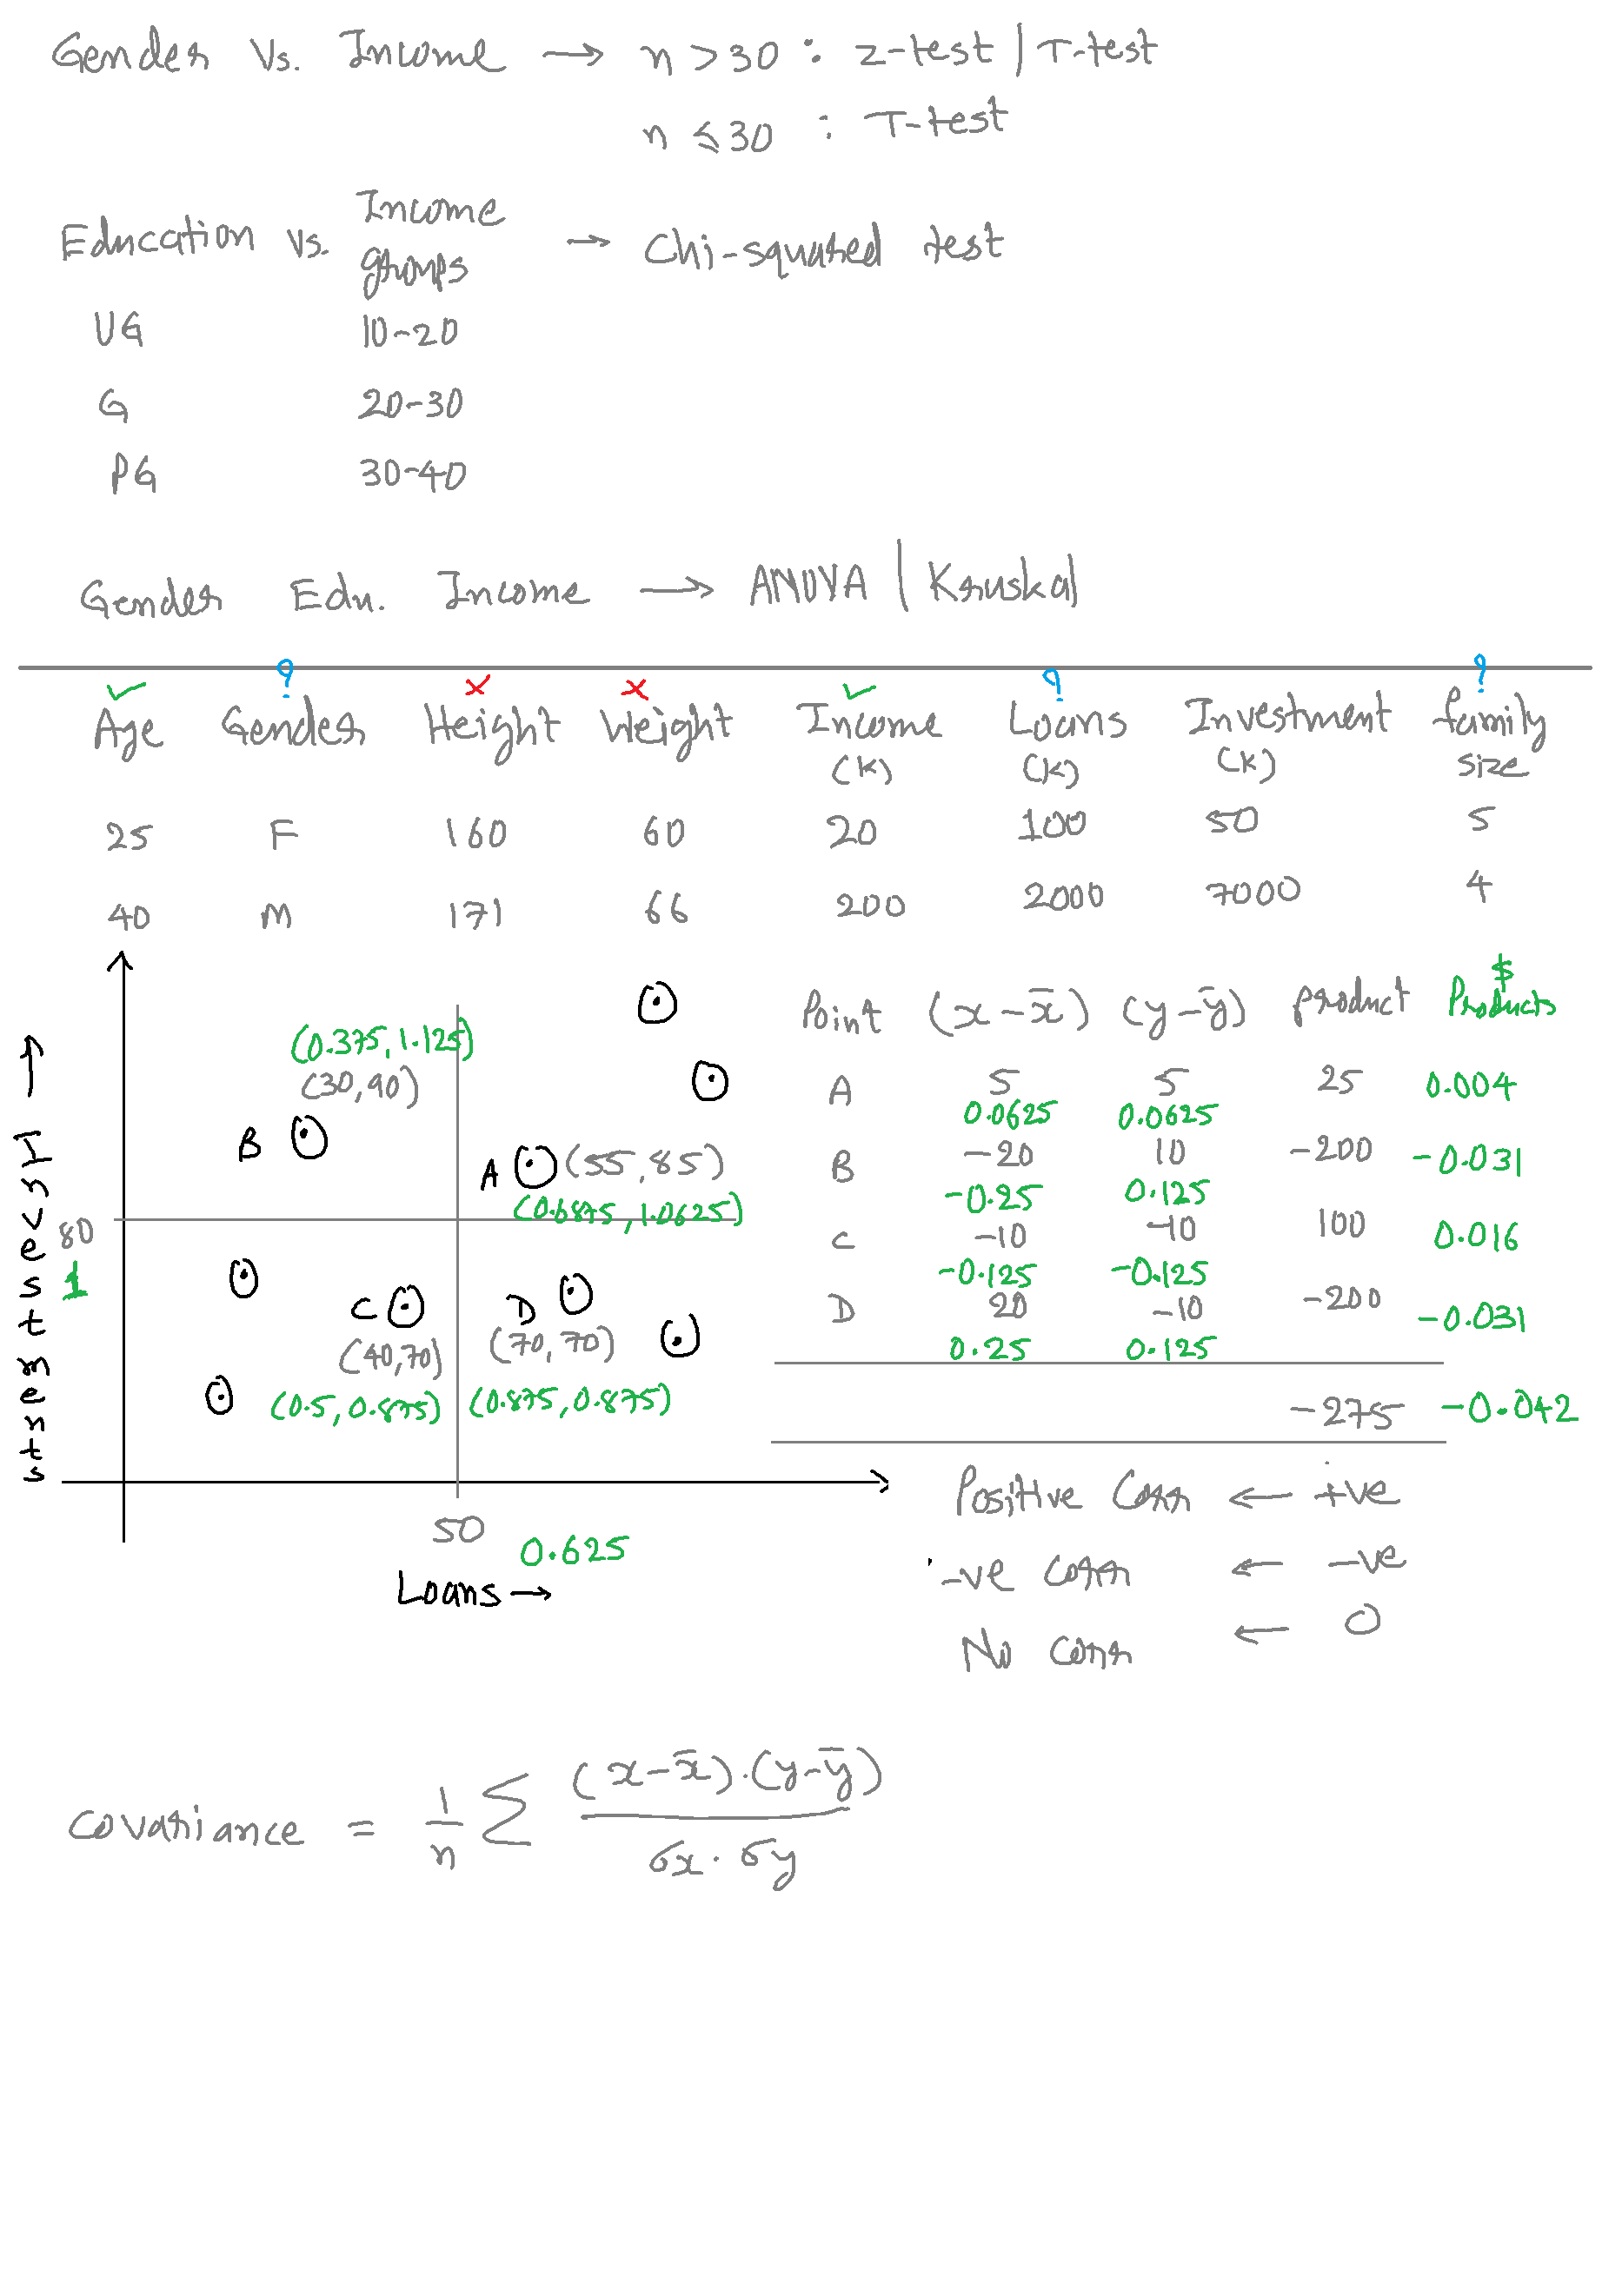 Gender Vs. Income → n > 30 : z-test | T-test
n ≤ 30 : T-test
Education Vs. Income groups → Chi-squared test
UG 10-20
G 20-30
PG 30-40
Gender Edu. Income → ANOVA | Kruskal
✓ ? × × ✓ ? ?
Age Gender Height Weight Income Loans Investment family
(K) (K) (K) size
25 F 160 60 20 100 50 5
40 M 171 66 200 2000 7000 4
Investments →
(0.375, 1.125)
(30, 90)
B
A (55, 85)
(0.6875, 1.0625)
80
1
C D
(40, 70) (70, 70)
(0.5, 0.875) (0.875, 0.875)
50
0.625
Loans →
$
Point (x - x̄) (y - ȳ) product Products
A 5 5 25 0.004
0.0625 0.0625
B -20 10 -200 -0.031
-0.25 0.125
C -10 -10 100 0.016
-0.125 -0.125
D 20 -10 -200 -0.031
0.25 0.125
-275 -0.042
Positive Corr ← +ve
-ve corr ← -ve
No corr ← 0
covariance = 1/n Σ (x - x̄).(y - ȳ) / σx . σy